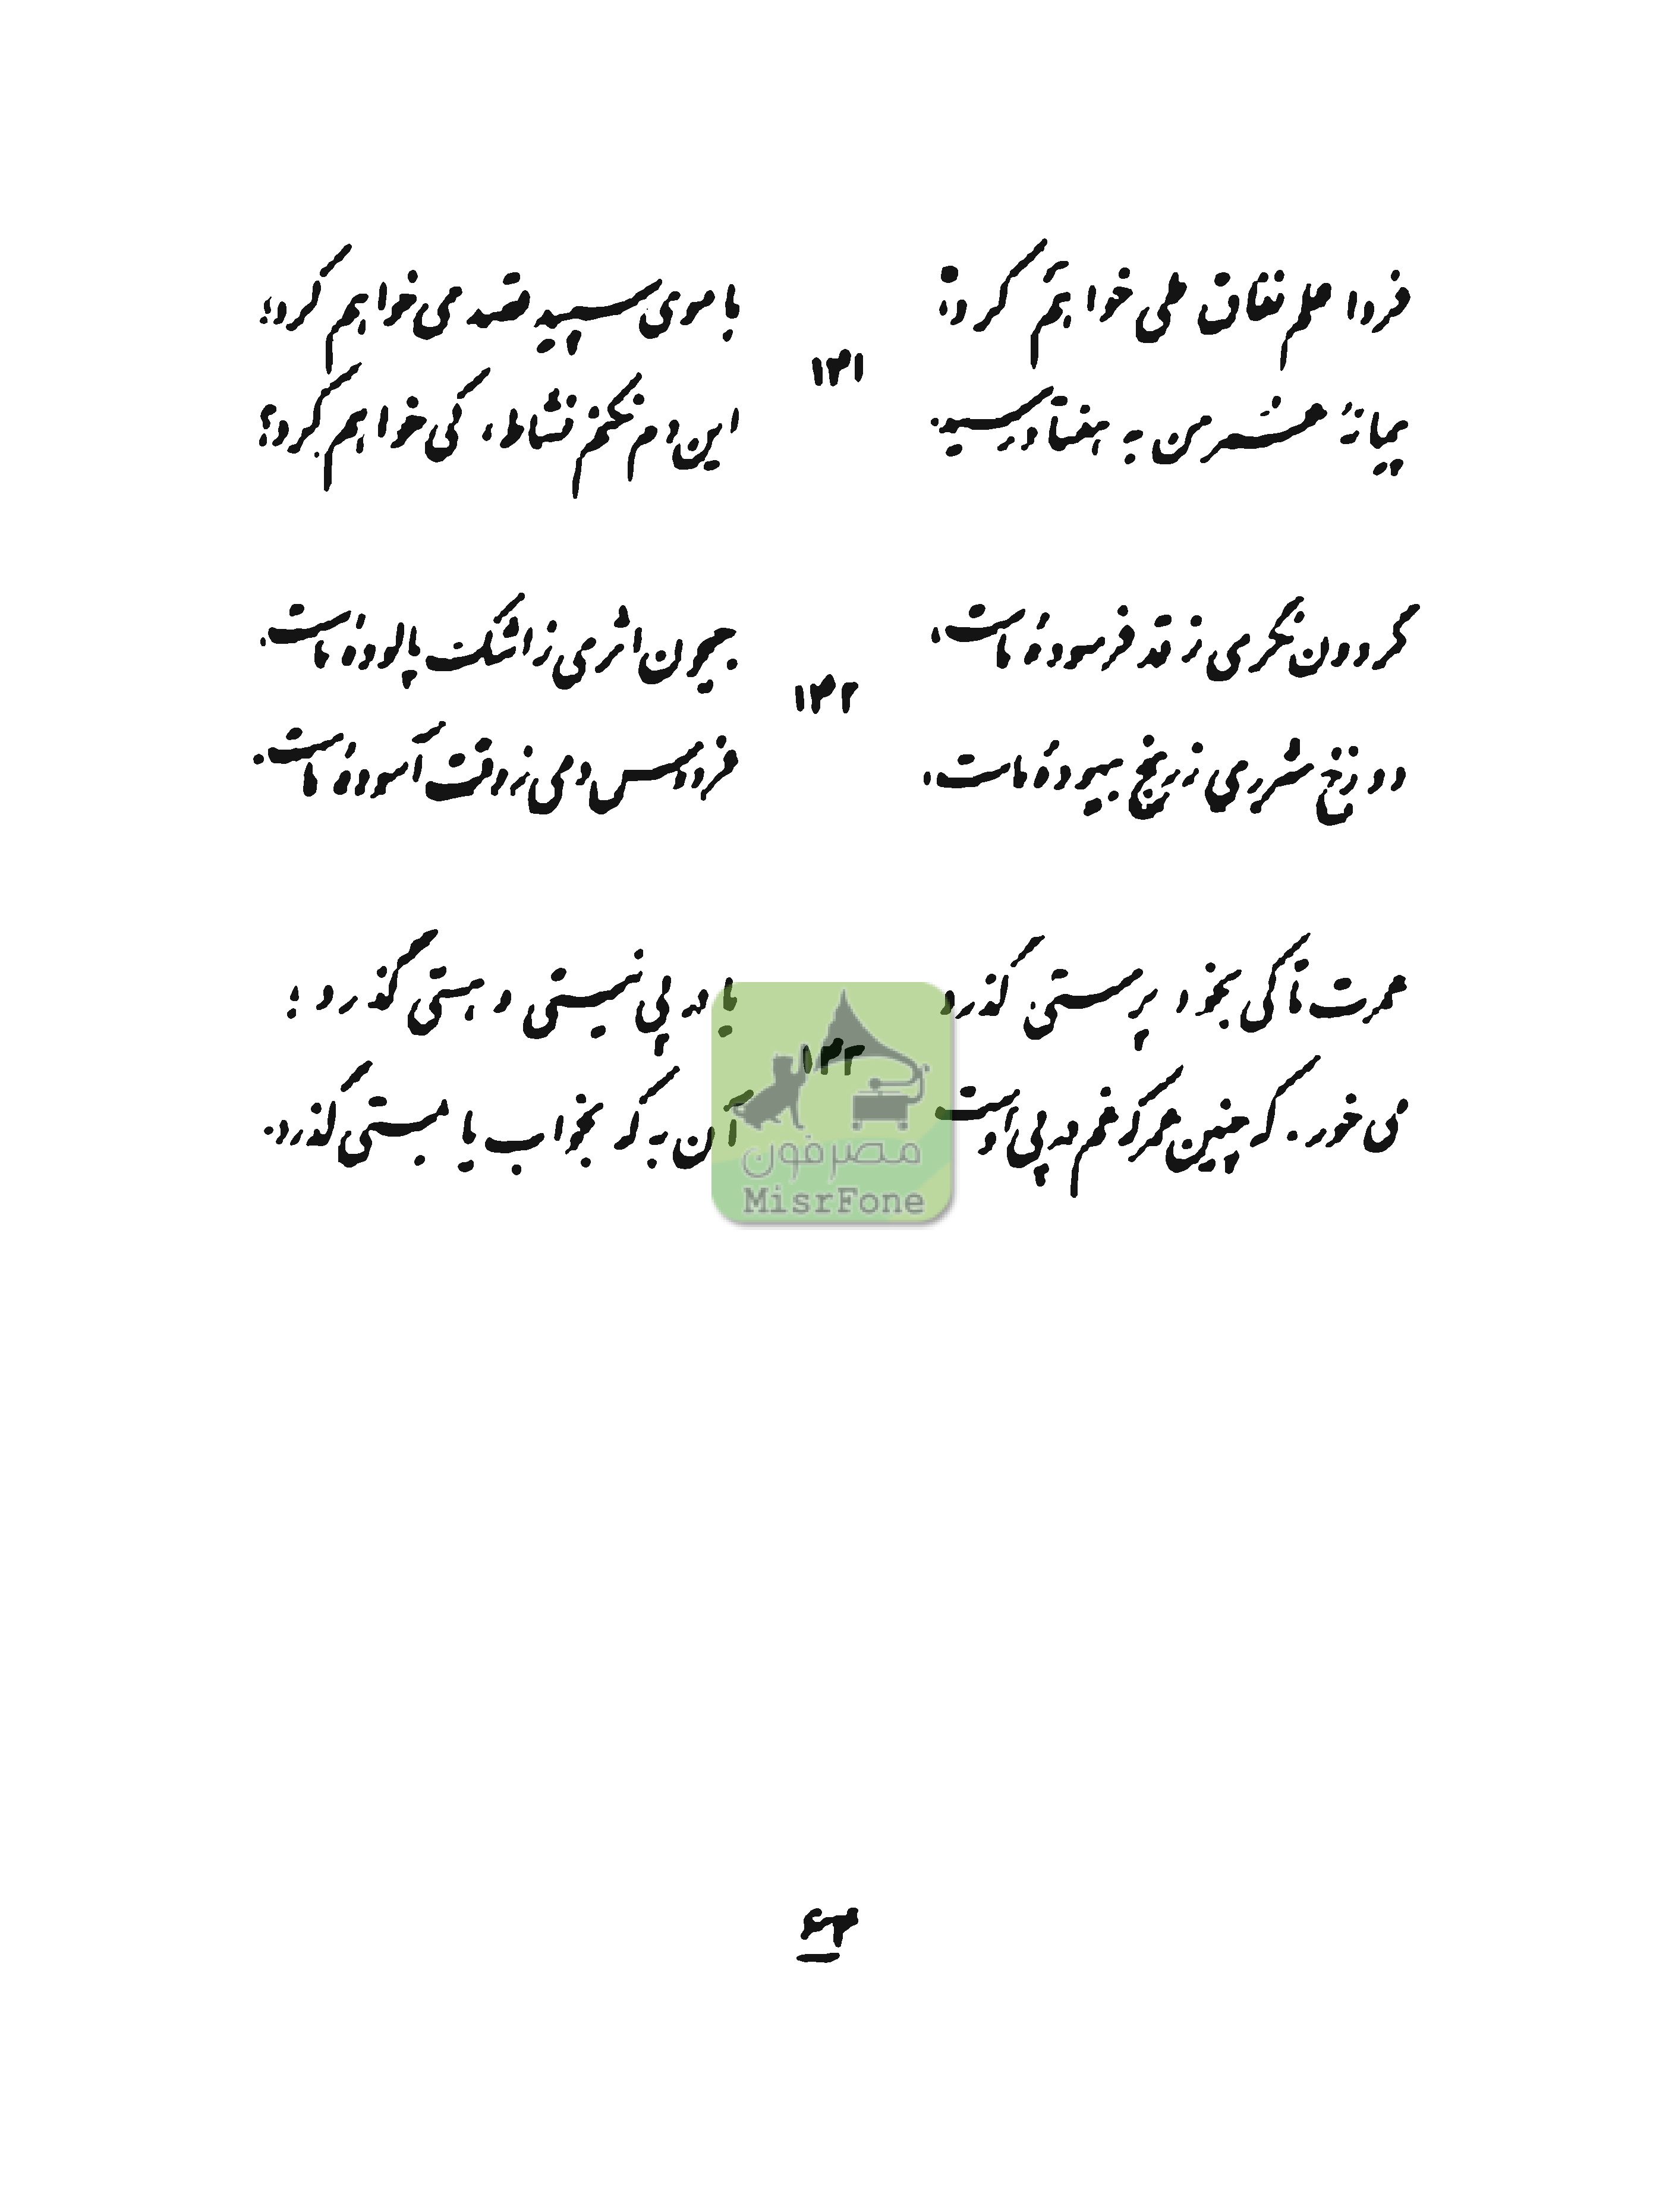 فردا علم نفاق طی خواهم کرد، با موی سپید قصد می خواهم کرد؛
۱۳۱
پیمانهٔ عمر من به هفتاد رسید. این دم نکنم نشاط، کی خواهم کرد؟
گردون نگری ز قد فرسودهٔ ماست، جیحون اثری ز اشک پالودهٔ ماست.
۱۳۲
دوزخ شرری ز رنج بیهودهٔ ماست، فردوس دمی ز وقت آسودهٔ ماست.
عمرت تا کی بخود پرستی گذرد یا در پی نیستی و هستی گذرد؛
۱۳۳
می خور. که چنین عمر که غم در پی اوست آن به که بخواب یا بمستی گذرد.
مصرفون
MisrFone
۶۳